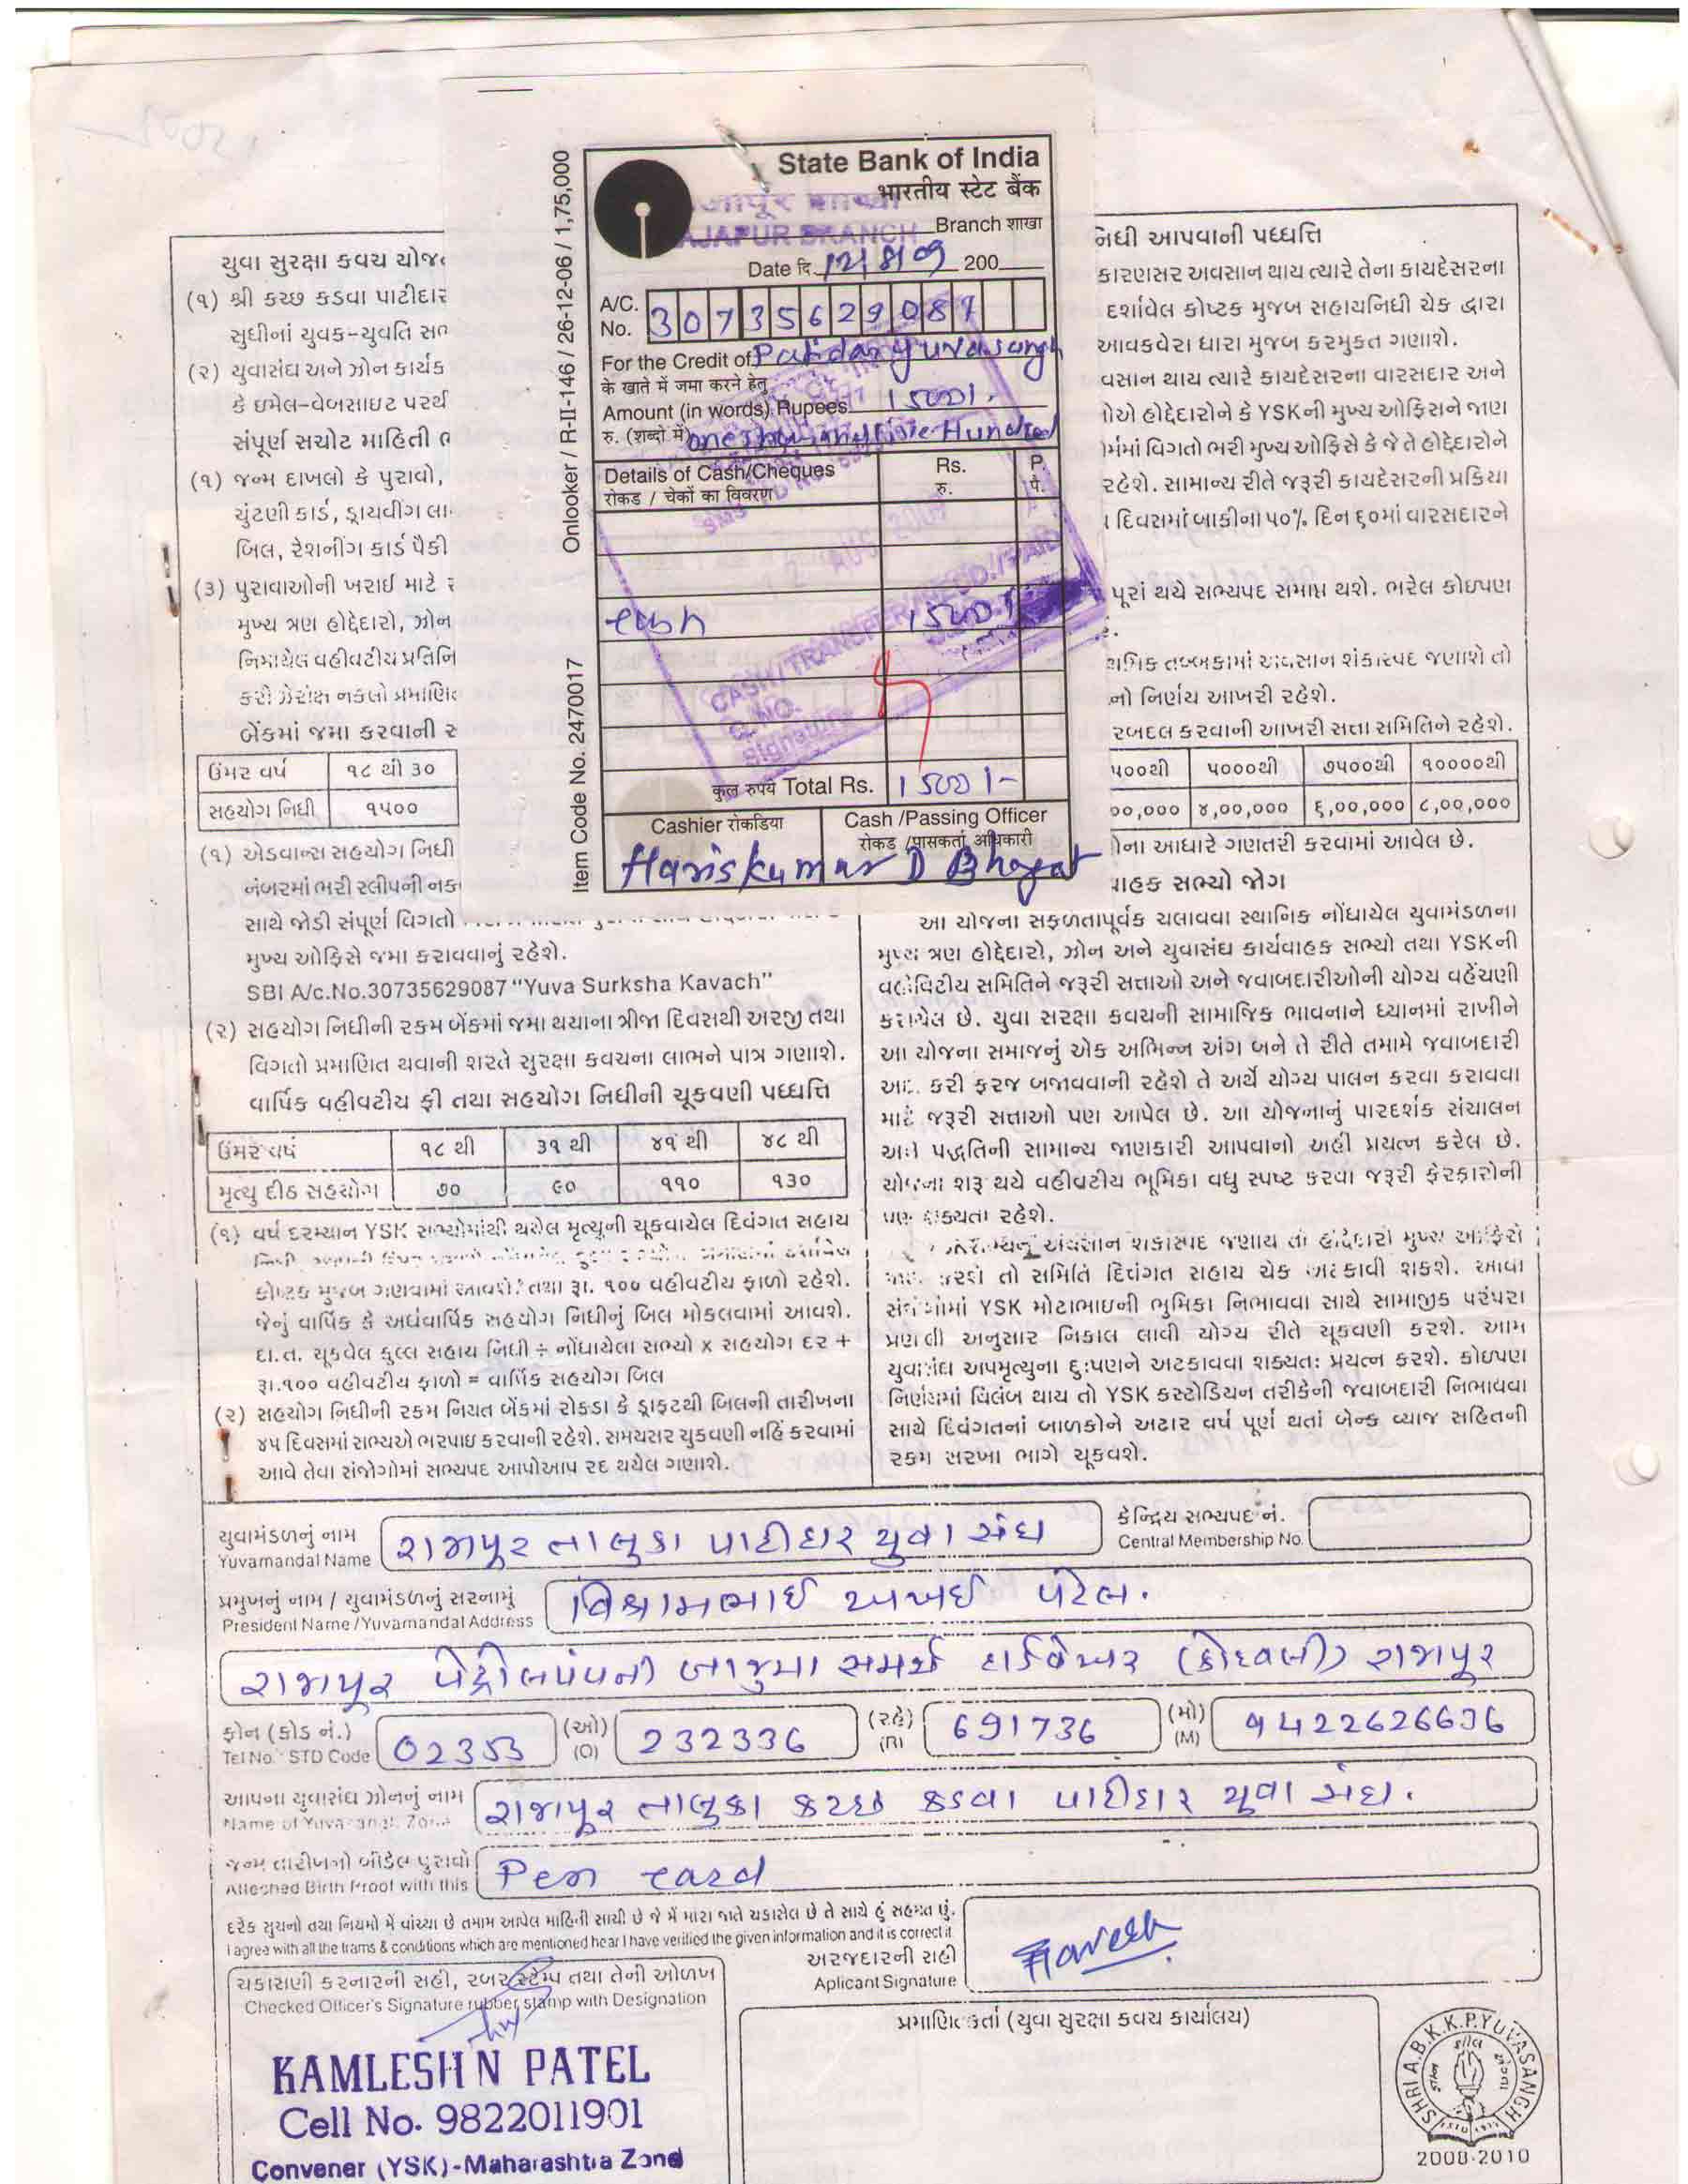 State Bank of India
भारतीय स्टेट बैंक
AJAPUR BRANCH
Branch शाखा
Date दि. 12/8/09 200
A/C. No. 30735629087
For the Credit of Patidar Yuvasangh
के खाते में जमा करने हेतु
Amount (in words) Rupees 1500/-
रु. (शब्दो में) one Hundred
Details of Cash/Cheques Rs. P.
रोकड / चेकों का विवरण रु. पै.
cash 1500/-
CASH/TRANSFER/RECD./PAID
कुल रुपये Total Rs. 1500/-
Cashier रोकडिया Cash /Passing Officer
रोकड /पासकर्ता अधिकारी
Hariskumar D Bhagat
Onlooker / R-II-146 / 26-12-06 / 1,75,000
Item Code No. 2470017
યુવા સુરક્ષા કવચ
(૧) શ્રી કચ્છ કડવા પાટીદાર
સુધીનાં યુવક-યુવતિ
(૨) યુવાસંઘ અને ઝોન
કે ઇમેલ-વેબસાઇટ પરથી
સંપૂર્ણ સચોટ માહિતી
(૧) જન્મ દાખલો કે પુરાવો,
ચુંટણી કાર્ડ, ડ્રાયવીંગ
બિલ, રેશનીંગ કાર્ડ પૈકી
(૩) પુરાવાઓની ખરાઈ માટે
મુખ્ય ત્રણ હોદ્દેદારો, ઝોન
નિમાયેલ વહીવટીય
કરી ઝેરોક્ષ નકલો
બેંકમાં જમા કરવાની
ઉંમર વર્ષ ૧૮ થી ૩૦
સહયોગ નિધી ૧૫૦૦
(૧) એડવાન્સ સહયોગ નિધી
નંબરમાં ભરી સ્લીપની
સાથે જોડી સંપૂર્ણ વિગતો
મુખ્ય ઓફિસે જમા કરાવવાનું રહેશે.
SBI A/c.No.30735629087 "Yuva Surksha Kavach"
(૨) સહયોગ નિધીની રકમ બેંકમાં જમા થયાના ત્રીજા દિવસથી અરજી તથા
વિગતો પ્રમાણિત થવાની શરતે સુરક્ષા કવચના લાભને પાત્ર ગણાશે.
વાર્ષિક વહીવટીય ફી તથા સહયોગ નિધીની ચૂકવણી પધ્ધતિ
ઉંમર વર્ષ ૧૮ થી ૩૧ થી ૪૧ થી ૪૮ થી
મૃત્યુ દીઠ સહયોગ ૭૦ ૯૦ ૧૧૦ ૧૩૦
(૧) વર્ષ દરમ્યાન YSK સભ્યોમાંથી થયેલ મૃત્યુની ચૂકવાયેલ દિવંગત સહાય
કોષ્ટક મુજબ ગણવામાં આવશે. તથા રૂા. ૧૦૦ વહીવટીય ફાળો રહેશે.
જેનું વાર્ષિક કે અર્ધવાર્ષિક સહયોગ નિધીનું બિલ મોકલવામાં આવશે.
દા.ત. ચૂકવેલ કુલ્લ સહાય નિધી ÷ નોંધાયેલા સભ્યો x સહયોગ દર +
રૂા.૧૦૦ વહીવટીય ફાળો = વાર્ષિક સહયોગ બિલ
(૨) સહયોગ નિધીની રકમ નિયત બેંકમાં રોકડા કે ડ્રાફટથી બિલની તારીખના
૪૫ દિવસમાં સભ્યએ ભરપાઇ કરવાની રહેશે. સમયસર ચુકવણી નહિં કરવામાં
આવે તેવા સંજોગોમાં સભ્યપદ આપોઆપ રદ થયેલ ગણાશે.
નિધી આપવાની પધ્ધતિ
કારણસર અવસાન થાય ત્યારે તેના કાયદેસરના
દર્શાવેલ કોષ્ટક મુજબ સહાયનિધી ચેક દ્વારા
આવકવેરા ધારા મુજબ કરમુકત ગણાશે.
વસાન થાય ત્યારે કાયદેસરના વારસદાર અને
હોદ્દેદારોને કે YSKની મુખ્ય ઓફિસને જાણ
વિગતો ભરી મુખ્ય ઓફિસે કે જે તે હોદ્દેદારોને
રહેશે. સામાન્ય રીતે જરૂરી કાયદેસરની પ્રક્રિયા
દિવસમાં બાકીના ૫૦% દિન ૬૦માં વારસદારને
પૂરાં થયે સભ્યપદ સમાપ્ત થશે. ભરેલ કોઇપણ
તબ્બકામાં અવસાન શંકાસ્પદ જણાશે તો
નો નિર્ણય આખરી રહેશે.
રબદલ કરવાની આખરી સત્તા સમિતિને રહેશે.
૫૦૦થી ૫૦૦૦થી ૭૫૦૦થી ૧૦૦૦૦થી
૦૦,૦૦૦ ૪,૦૦,૦૦૦ ૬,૦૦,૦૦૦ ૮,૦૦,૦૦૦
ના આધારે ગણતરી કરવામાં આવેલ છે.
વાહક સભ્યો જોગ
આ યોજના સફળતાપૂર્વક ચલાવવા સ્થાનિક નોંધાયેલ યુવામંડળના
મુખ્ય ત્રણ હોદ્દેદારો, ઝોન અને યુવાસંઘ કાર્યવાહક સભ્યો તથા YSKની
વહીવટીય સમિતિને જરૂરી સત્તાઓ અને જવાબદારીઓની યોગ્ય વહેંચણી
કરાયેલ છે. યુવા સરક્ષા કવચની સામાજિક ભાવનાને ધ્યાનમાં રાખીને
આ યોજના સમાજનું એક અભિન્ન અંગ બને તે રીતે તમામે જવાબદારી
અદા કરી ફરજ બજાવવાની રહેશે તે અર્થે યોગ્ય પાલન કરવા કરાવવા
માટે જરૂરી સત્તાઓ પણ આપેલ છે. આ યોજનાનું પારદર્શક સંચાલન
અને પદ્ધતિની સામાન્ય જાણકારી આપવાનો અહીં પ્રયત્ન કરેલ છે.
યોજના શરૂ થયે વહીવટીય ભૂમિકા વધુ સ્પષ્ટ કરવા જરૂરી ફેરફારોની
પણ શક્યતા રહેશે.
અવસાન શકાસ્પદ જણાય તો હોદ્દેદારો મુખ્ય ઓફિસે
જાણ કરશે તો સમિતિ દિવંગત સહાય ચેક અટકાવી શકશે. આવા
સંજોગોમાં YSK મોટાભાઇની ભુમિકા નિભાવવા સાથે સામાજીક પરંપરા
પ્રણાલી અનુસાર નિકાલ લાવી યોગ્ય રીતે ચૂકવણી કરશે. આમ
યુવાસંઘ અપમૃત્યુના દુઃષણને અટકાવવા શક્યતઃ પ્રયત્ન કરશે. કોઇપણ
નિર્ણયમાં વિલંબ થાય તો YSK કસ્ટોડિયન તરીકેની જવાબદારી નિભાવવા
સાથે દિવંગતનાં બાળકોને અઢાર વર્ષ પૂર્ણ થતાં બેન્ક વ્યાજ સહિતની
રકમ સરખા ભાગે ચૂકવશે.
યુવામંડળનું નામ રાજાપુર તાલુકા પાટીદાર યુવા સંઘ કેન્દ્રિય સભ્યપદ નં.
Yuvamandal Name Central Membership No.
પ્રમુખનું નામ / યુવામંડળનું સરનામું વિશ્રામભાઈ અખઈ પટેલ.
President Name /Yuvamandal Address
રાજાપુર પેટ્રોલપંપની બાજુમા સમર્થ હાર્ડવેઅર (કોદવલી) રાજાપુર
ફોન (કોડ નં.) 02353 (ઓ) 232336 (રહે) 691736 (મો) 9422626636
Tel No. STD Code (O) (R) (M)
આપના યુવાસંઘ ઝોનનું નામ રાજાપુર તાલુકા કચ્છ કડવા પાટીદાર યુવા સંઘ.
Name of Yuvasangh Zone
જન્મ તારીખનો બીડેલ પુરાવો Pen card
Atteched Birth Proof with this
દરેક સુચનો તથા નિયમો મેં વાંચ્યા છે તમામ આપેલ માહિતી સાચી છે જે મેં મારા જાતે ચકાસેલ છે તે સાથે હું સહમત છું.
I agree with all the trams & conditions which are mentioned hear I have verified the given information and it is correct it
અરજદારની સહી
Aplicant Signature
Haresh
ચકાસણી કરનારની સહી, રબર સ્ટેમ્પ તથા તેની ઓળખ
Checked Officer's Signature rubber stamp with Designation
KAMLESH N PATEL
Cell No. 9822011901
Convener (YSK)-Maharashtra Zone
પ્રમાણિતકર્તા (યુવા સુરક્ષા કવચ કાર્યાલય)
SHRI A.B.K.K.P. YUVASANGH
2008-2010